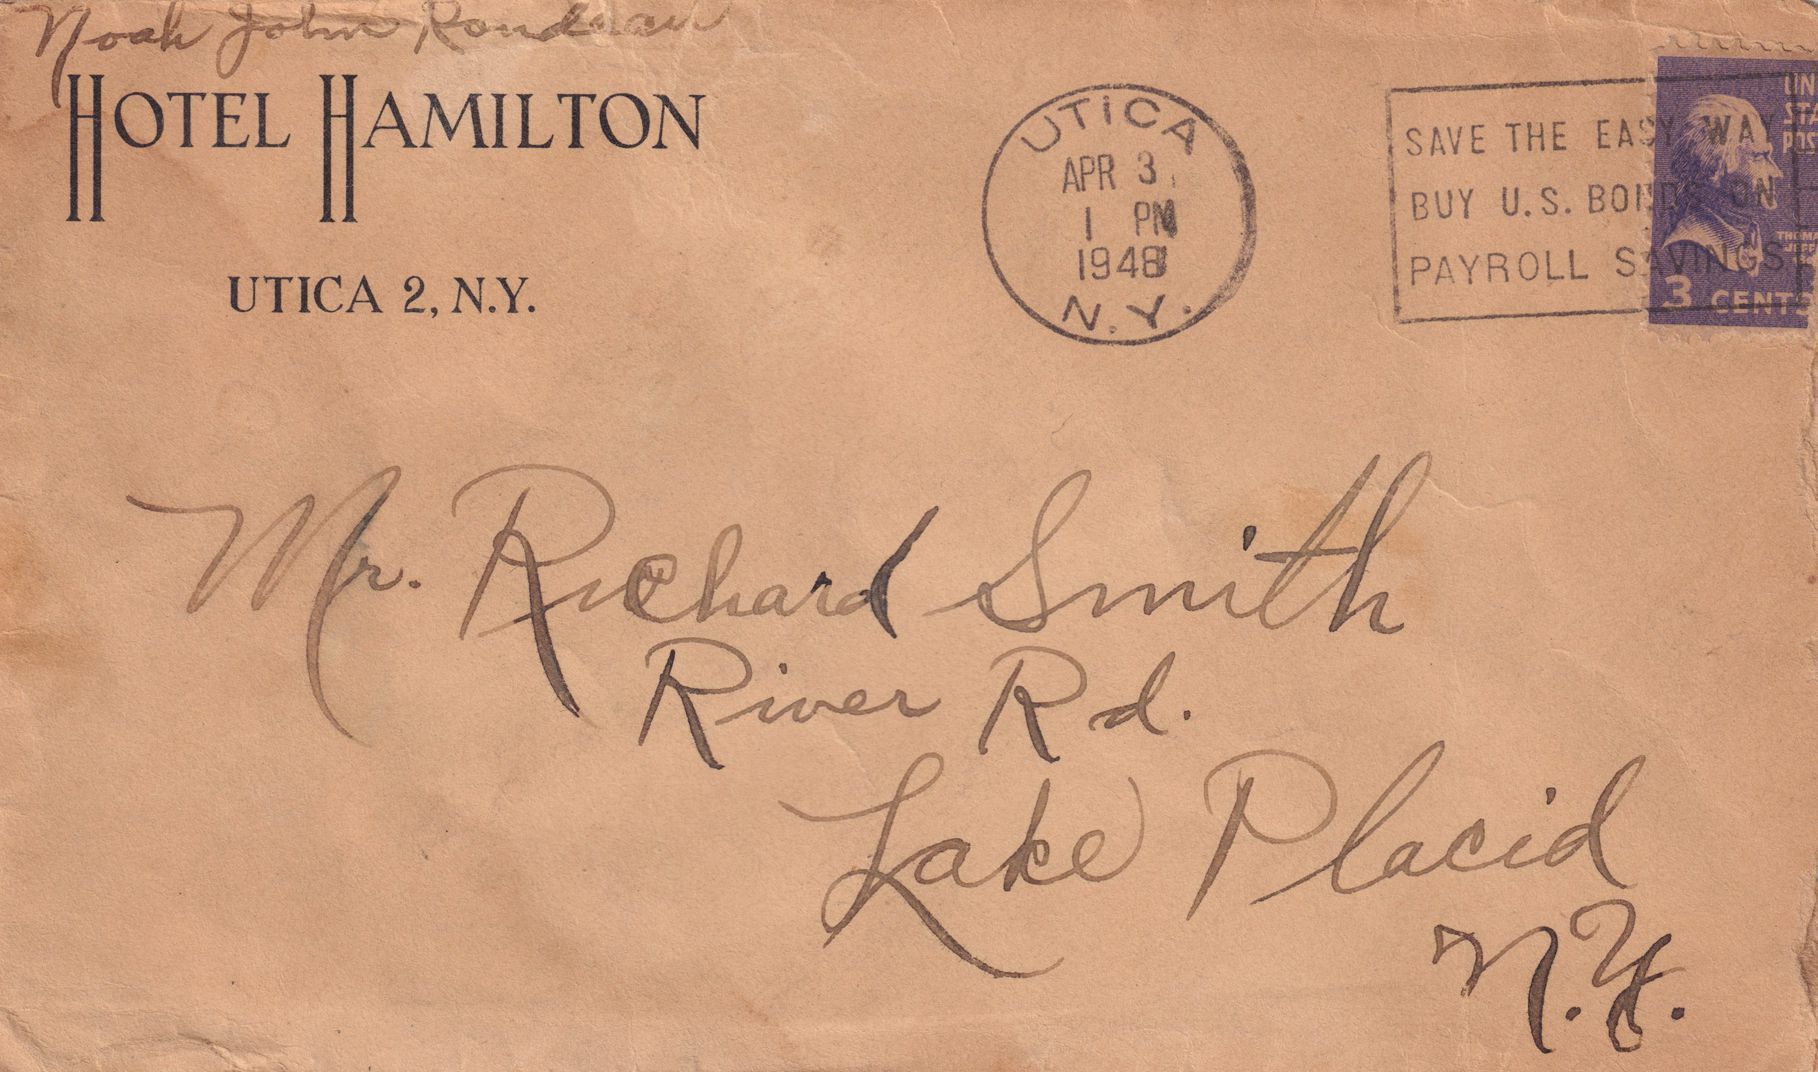 Noah John Rondeau
HOTEL HAMILTON
UTICA 2, N.Y.
UTICA
APR 3
1 PM
1948
N.Y.
SAVE THE EASY WAY
BUY U.S. BONDS ON
PAYROLL SAVINGS
3 CENTS
Mr. Richard Smith
River Rd.
Lake Placid
N.Y.